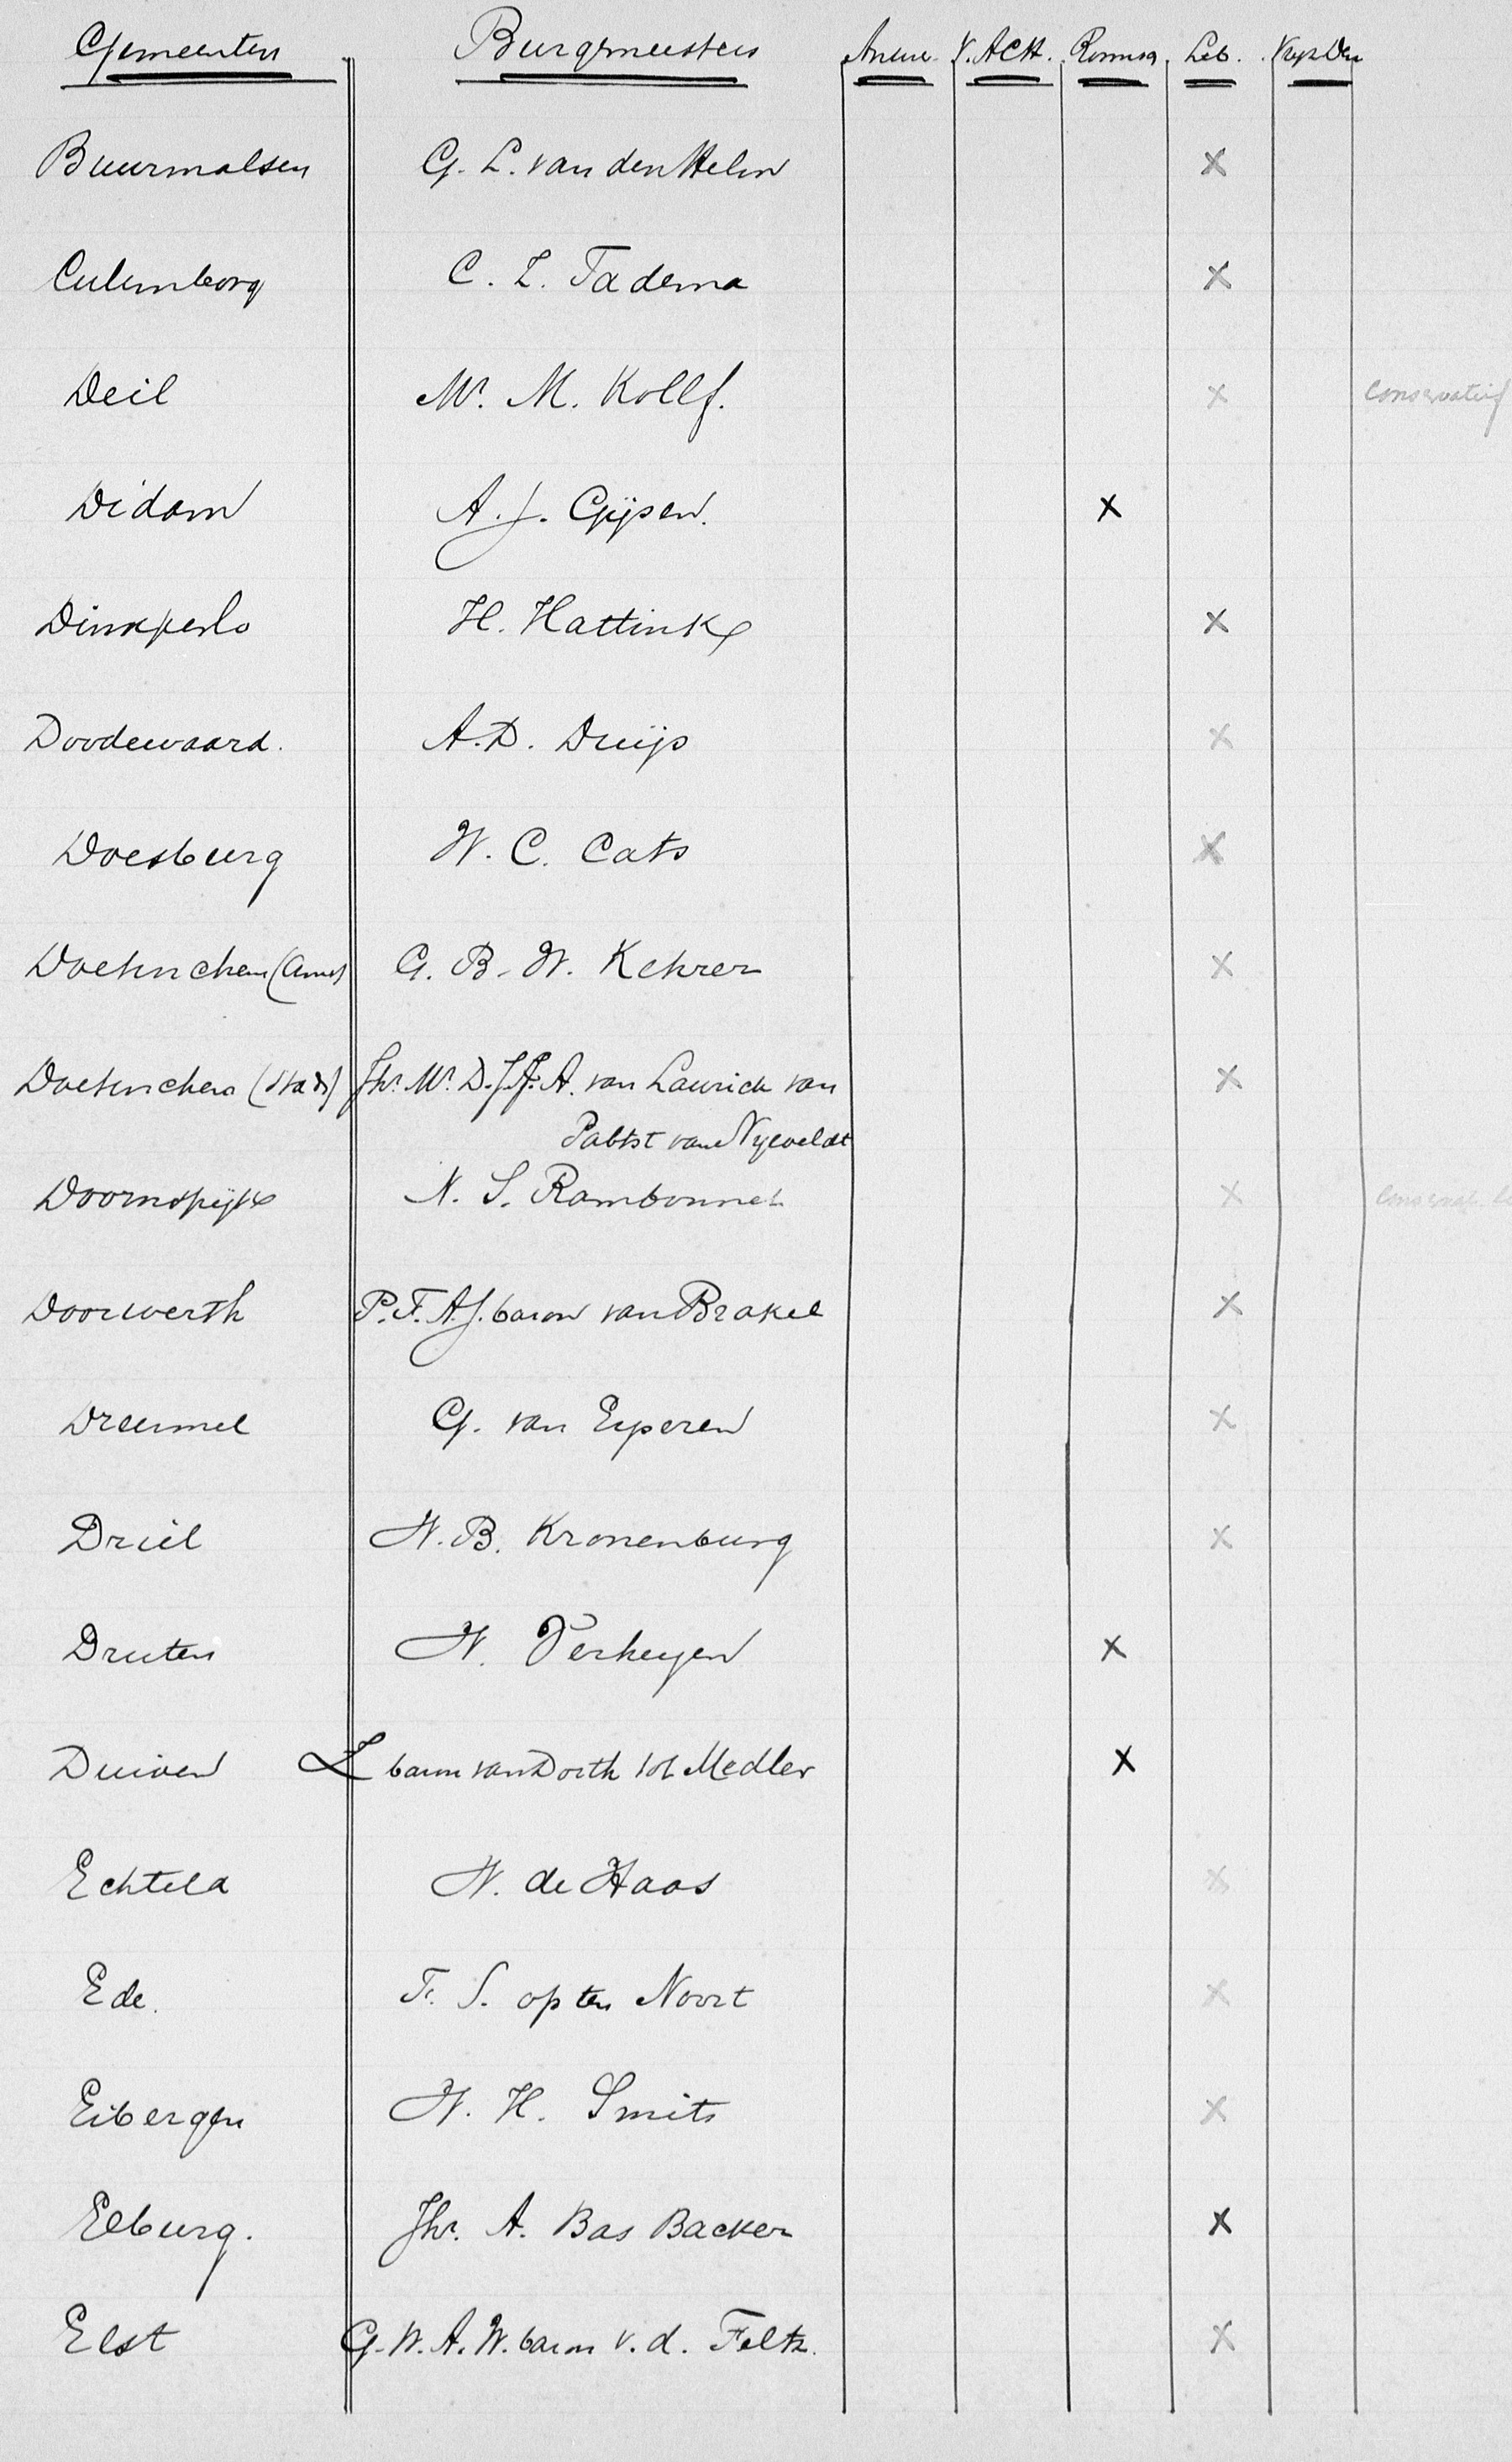 Gemeenten Burgemeesters Antirev. V.ACH. Roomsch. Lib. Vrijz Dem
Buurmalsen G. L. van den Helm X
Culemborg C. L. Tadema X
Deil Mr. M. Kolff. X conservatief
Didam A. J. Gijsen. X
Dinxperlo H. Hattink X
Doodewaard. A. D. Duijs X
Doesburg W. C. Cats X
Doetinchem (Ambt) G. B. W. Kehrer X
Doetinchem (Stad) Jhr. Mr. D. J. A. A. van Lawick van X
Pabst van Nyevelt
Doornspijk N. S. Rambonnet X
Doorwerth P. F. A. J. baron van Brakel X
Dreumel G. van Eyseren X
Driel W. B. Kronenburg X
Druten W. Verheyen X
Duiven Z baron van Dorth tot Medler X
Echteld W. de Haas X
Ede. F. S. op ten Noort X
Eibergen W. H. Smits X
Elburg. Jhr. A. Bas Backer X
Elst G. W. A. W. baron v. d. Feltz. X